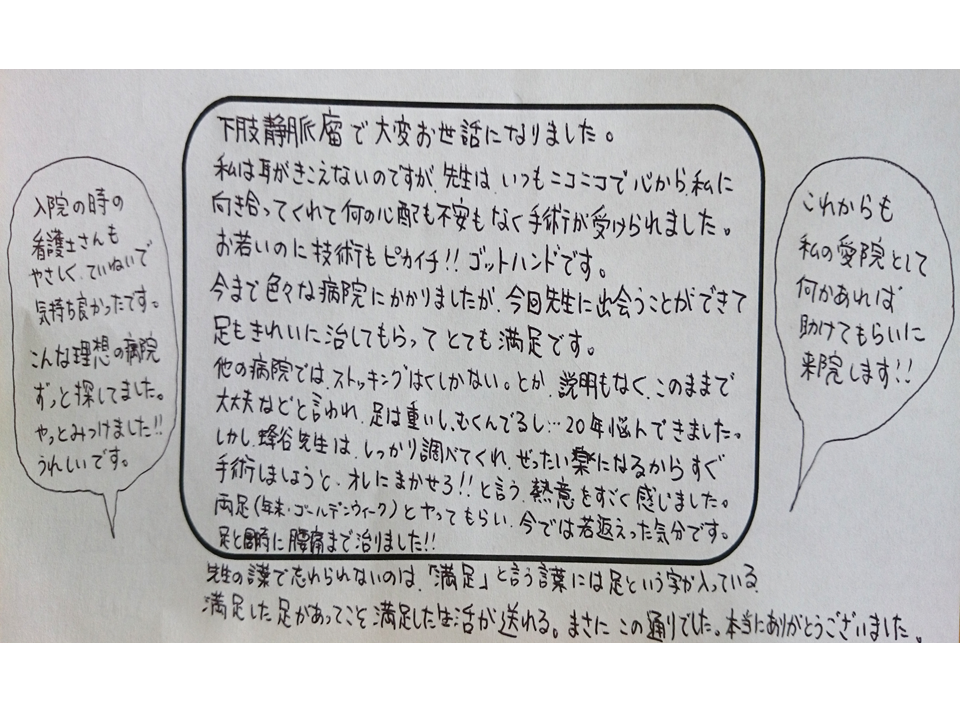 下肢静脈瘤で大変お世話になりました。
私は耳がきこえないのですが、先生は、いつもニコニコで心から、私に
向き合ってくれて何の心配も不安もなく手術が受けられました。
お若いのに技術もピカイチ!!ゴットハンドです。
今まで色々な病院にかかりましたが、今回先生に出会うことができて
足もきれいに治してもらってとても満足です。
他の病院では、ストッキングはくしかない。とか、説明もなく、このままで
大丈夫などと言われ、足は重いし、むくんでるし…20年悩んできました。
しかし、蜂谷先生は、しっかり調べてくれ、ぜったい楽になるからすぐ
手術しましょうと、オレにまかせろ!!と言う、熱意をすごく感じました。
両足(年末・ゴールデンウィーク)とやってもらい、今では若返えった気分です。
足と同時に腰痛まで治りました!!
先生の言葉で忘れられないのは、「満足」と言う言葉には足という字が入っている
満足した足があってこそ満足した生活が送れる。まさにこの通りでした。本当にありがとうございました。
入院の時の
看護士さんも
やさしく、ていねいで
気持ち良かったです。
こんな理想の病院
ずっと探してました。
やっとみつけました!!
うれしいです。
これからも
私の愛院として
何かあれば
助けてもらいに
来院します!!